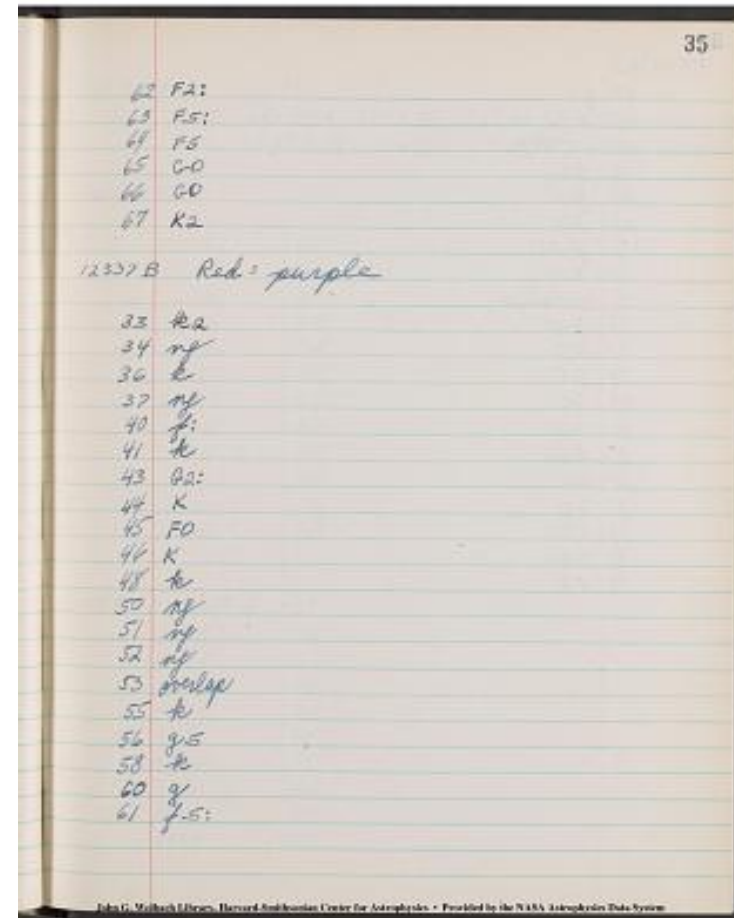 35
62 F2:
63 F5:
64 F5
65 G0
66 G0
67 K2
12337 B Red = purple
33 k2
34 nf
36 k
37 nf
40 f:
41 k
43 G2:
44 K
45 F0
46 K
48 k
50 nf
51 nf
52 nf
53 overlap
55 k
56 g5
58 k
60 g
61 f5:
John G. Wolbach Library, Harvard-Smithsonian Center for Astrophysics • Provided by the NASA Astrophysics Data System